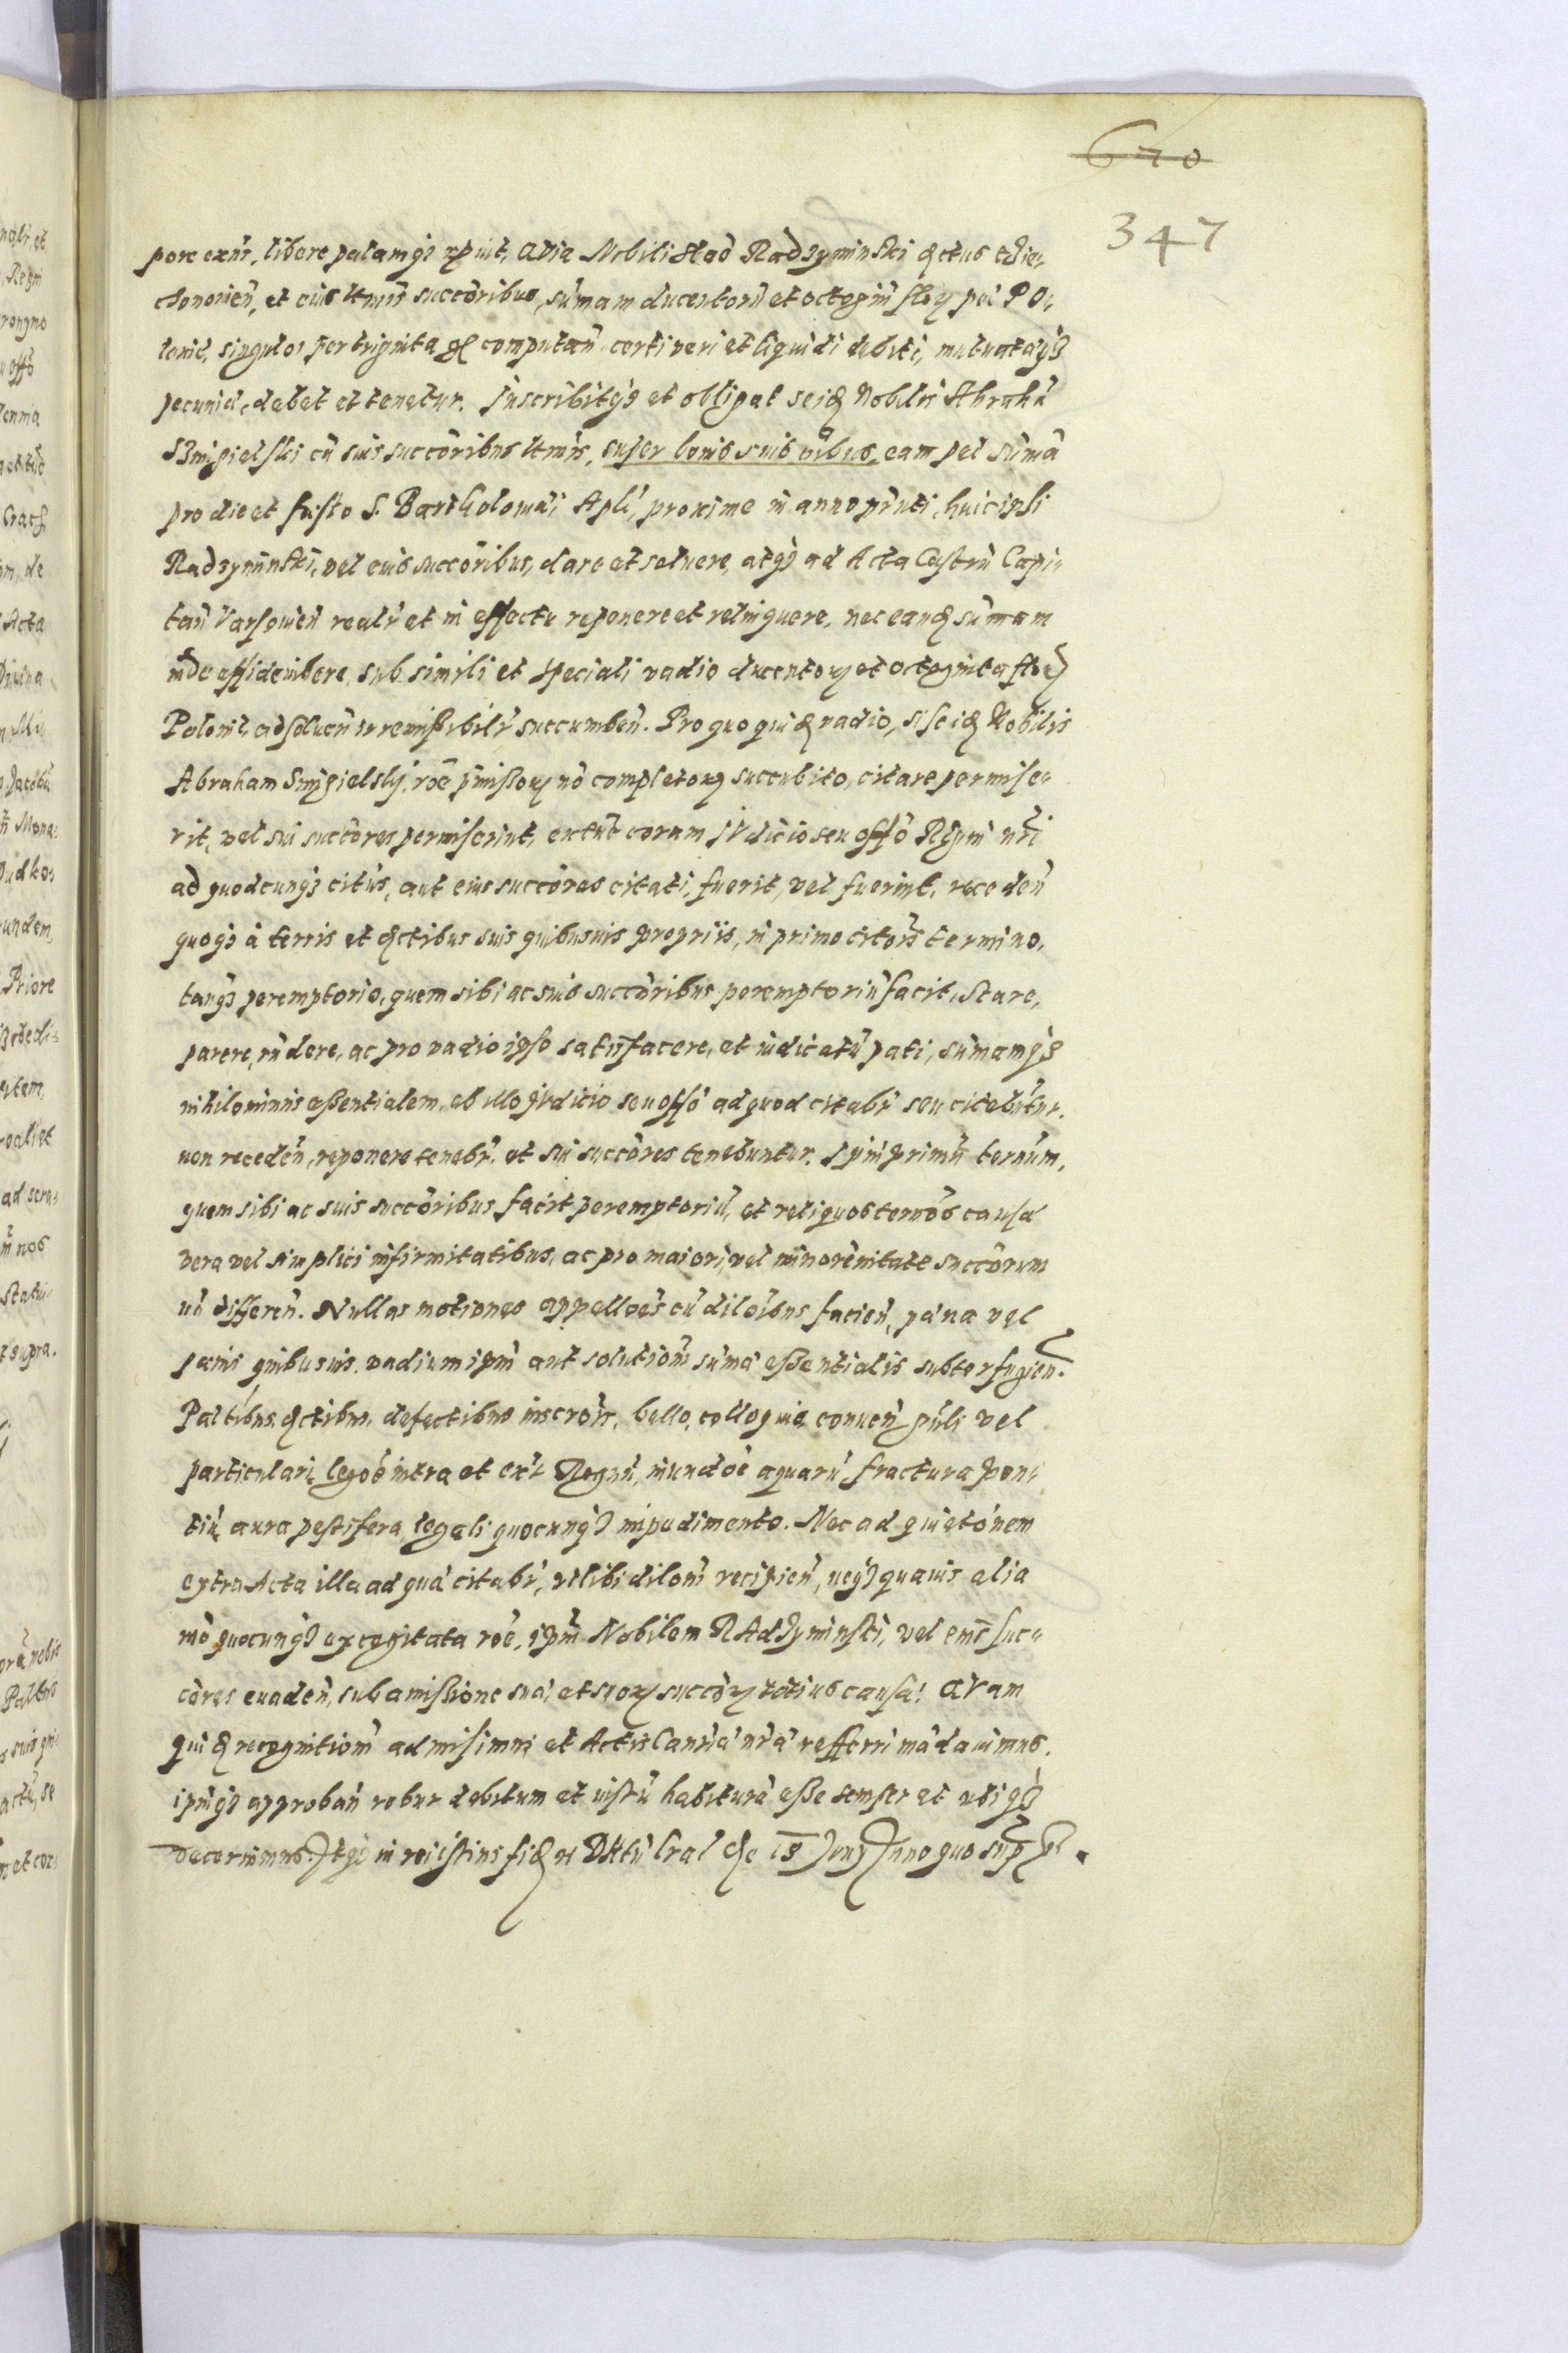 670
347
pore exñs, libere palamq3 rp̃uit, Quia Nobili Stao Radzyminski &ctus Cie⸗
chonoñen, et eius ltmis succõribus, sũmam ducentorũ et octogin̄ floꝶ pol Po⸗
lonic, singulos per triginta gl computañ certi veri et liquidi debiti, mutuataq3
pecunia, debet et tenetur. Inscribitq3 et obligat se id Nobilis Abrahã
SSmigielski cũ suis succõribus ltmis, super bonis suis oĩbus, eam pel sũmã
pro die et festo S. Bartholomæi Apli, proxime in anno pr̃nti, huic ipsi
Radzyminski, vel eius succõribus, dare et soluere, atq3 ad Acta Castrñ Capi⸗
tañ Varsouień realr̃ et in effectu reponere et relinquere, nec eand sũmam
inde affidembere, sub simili et speciali vadio ducentoꝶ et octoginta floꝶ
Polonic adsoluen irremissibilr̃ succumbeñ. Pro quo quid vadio, si se id Nobilis
Abraham Smigielsky, rõe p̃missoꝶ nõ completoꝶ succubito, citare permise⸗
rit, vel sui succõres permiserint, extũc coram Iudicio seu offõ Regni nr̃i
ad quodcunq3 citũs, aut eius succõres citati, fuerit, vel fuerint, recedeñ
quoq3 à terris et &ctibus suis quibusuis propriis, in primo citõis termino,
tanq3 peremptorio, quem sibi ac suis succõribus peremptoriũ facit, stare,
parere, rñdere, ac pro vadio ipso satisfacere, et iudicatũ pati, sũmamq3
nihilominus essentialem, ab illo Iudicio seu offõ ad quod citabr̃ seu citabũtur,
non recedeñ, reponere tenebr̃. et sui succõres tenebuntur. Ipm̃ primũ termũm,
quem sibi ac suis succõribus facit peremptoriũ, et reliquos termõs causa
vera vel simplici infirmitatibus, ac pro maiori, vel minorenitate succõrum
nõ differeñ. Nullas motiones appellões cũ dilõibus facień, pæna vel
pænis quibusuis. vadium ipm̃ aut solutiom̃ sũmæ essentialis subterfugień.
Pactibus, &ctibus, defectibus inscrõis, bello, colloquio, conueñ publi vel
particulari, legõe intra et ext Regnũ, inundõe aquarũ fractura pon⸗
tiũ, aura pestifera, legali quocunq3 impedimento. Nec ad quietõnem
extra Acta illa ad quæ citabr̃, vel ibi dilom̃ recipień, neq3 quauis alia
mõ quocunq3 excogitata rõe, ipm̃ Nobilem Radzyminski, vel eius suc⸗
cõres euadeñ, sub amissione sua, et suoꝶ succõꝶ totius causæ. Quam
quid recognitiom̃ admisimus et Actis Canr̃iæ nr̃æ refferri mãdauimus.
ipm̃q3 approbañ robur debitum et iustũ habiturã esse semper et ubiq3
decernimus. Atq3 in rei istius fid et Dttũ Crac die 13 Iuny Anno quo supra.